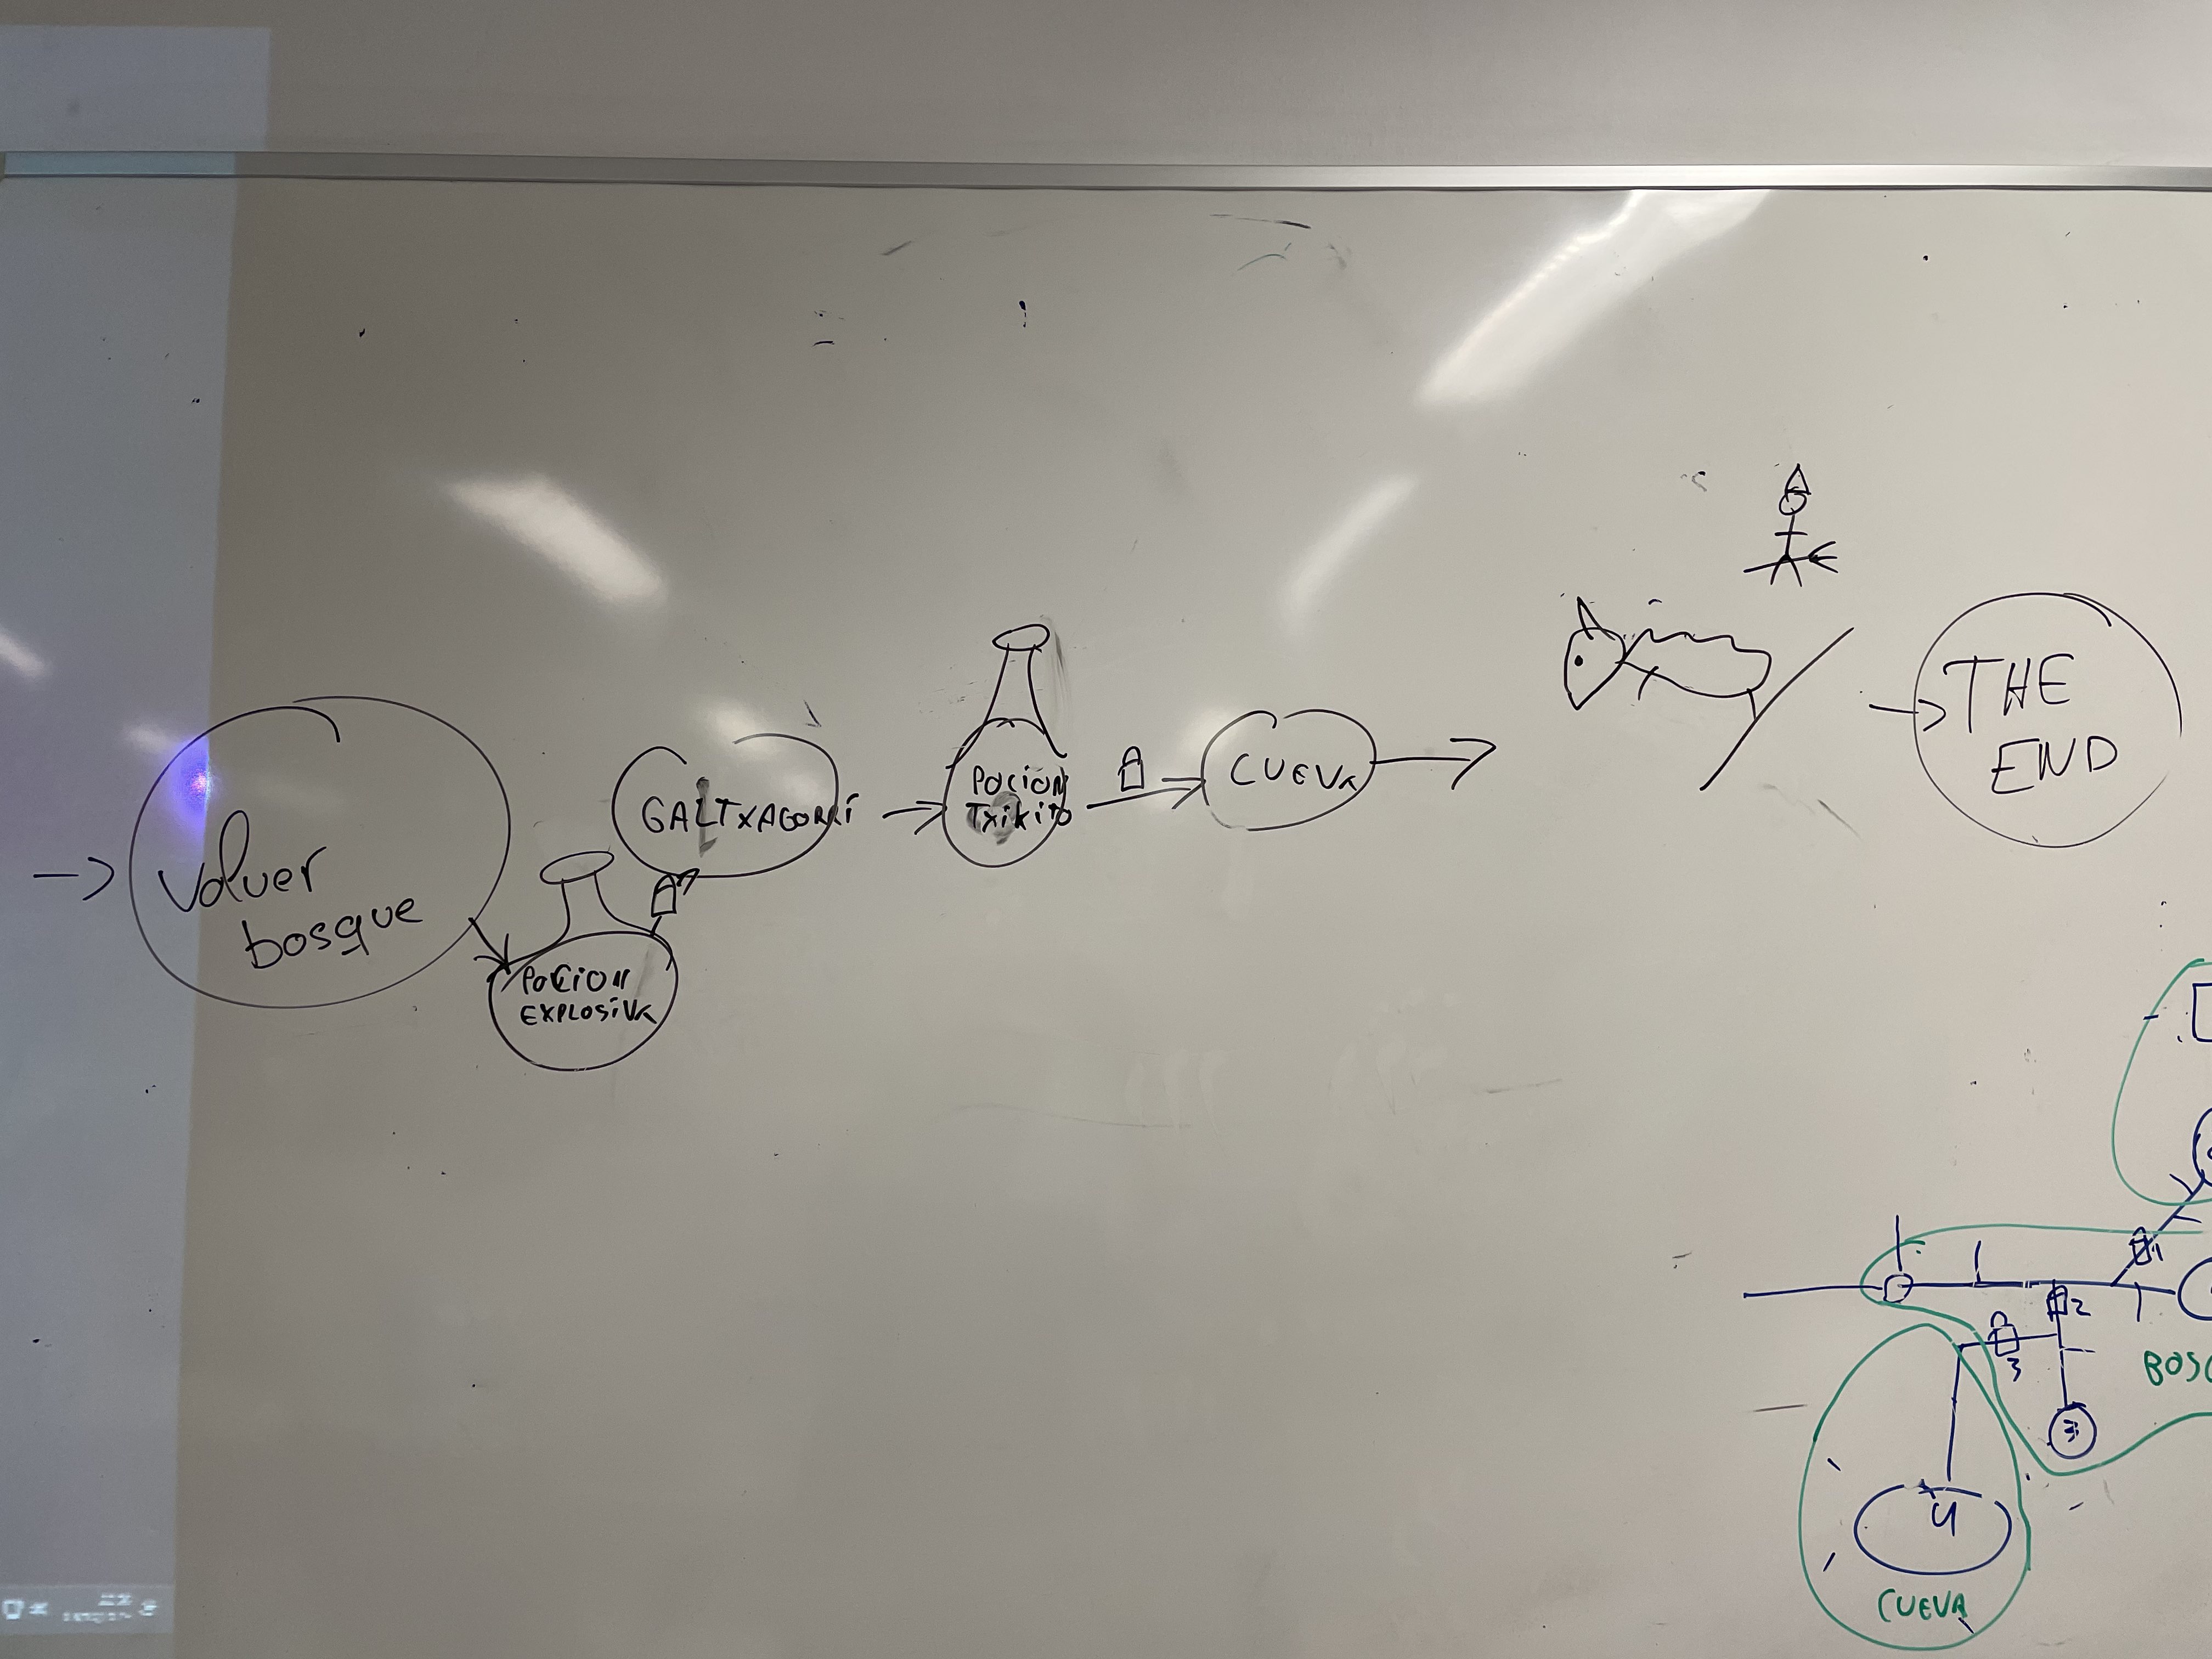 volver
bosque
POCION
EXPLOSIVA
GALTXAGORRI
POCION
TXIKITO
CUEVA
THE
END
1
2
3
BOSC
3
4
CUEVA